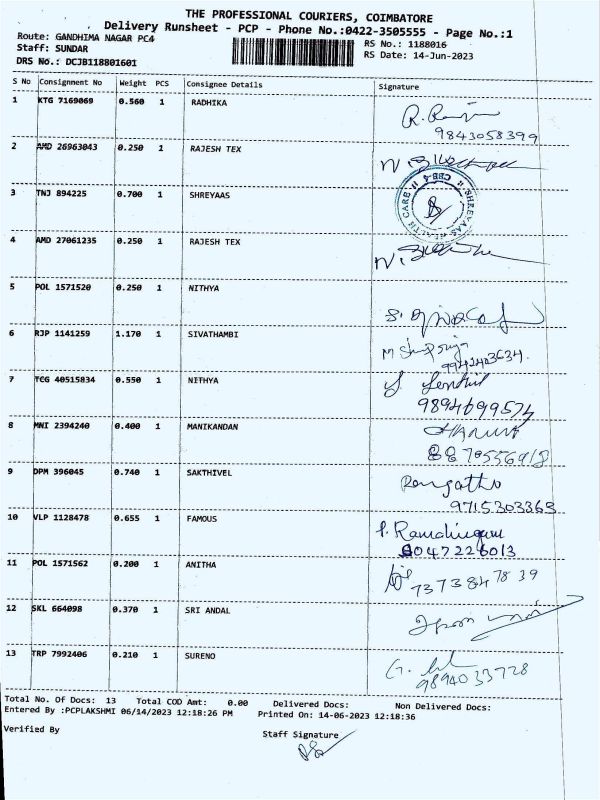 THE PROFESSIONAL COURIERS, COIMBATORE
Delivery Runsheet - PCP - Phone No.:0422-3505555 - Page No.:1
Route: GANDHIMA NAGAR PC4
RS No.: 1188016
Staff: SUNDAR
RS Date: 14-Jun-2023
DRS No.: DCJB118801601
S No Consignment No Weight PCS Consignee Details Signature
1 KTG 7169069 0.560 1 RADHIKA
9843058399
2 AMD 26963043 0.250 1 RAJESH TEX
3 TNJ 894225 0.700 1 SHREYAAS
SHREYAAS HEALTH CARE
4 AMD 27061235 0.250 1 RAJESH TEX
5 POL 1571520 0.250 1 NITHYA
6 RJP 1141259 1.170 1 SIVATHAMBI
7 TCG 40515834 0.550 1 NITHYA
9894699574
8 MNI 2394240 0.400 1 MANIKANDAN
9 DPM 396045 0.740 1 SAKTHIVEL
9715303363
10 VLP 1128478 0.655 1 FAMOUS
11 POL 1571562 0.200 1 ANITHA
737384 78 39
12 SKL 664098 0.370 1 SRI ANDAL
13 TRP 7992406 0.210 1 SURENO
9894033728
Total No. Of Docs: 13 Total COD Amt: 0.00 Delivered Docs: Non Delivered Docs:
Entered By :PCPLAKSHMI 06/14/2023 12:18:26 PM Printed On: 14-06-2023 12:18:36
Verified By
Staff Signature